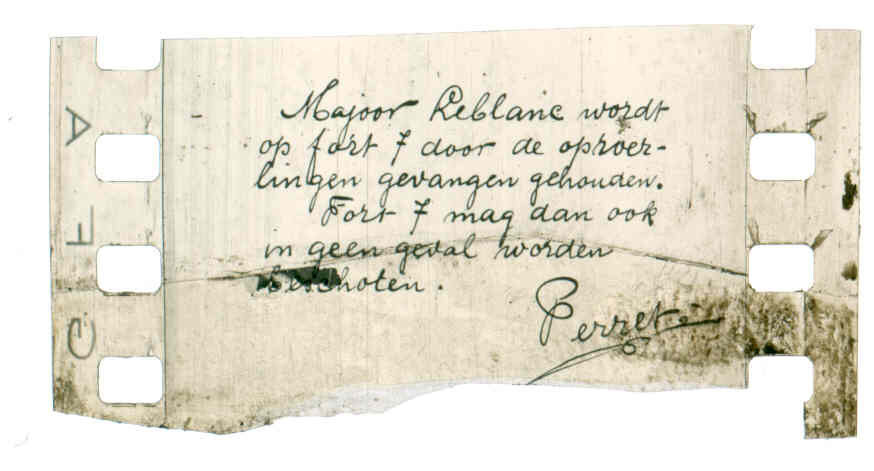 Majoor Leblanc wordt
op fort 7 door de oproer-
lingen gevangen gehouden.
Fort 7 mag dan ook
in geen geval worden
beschoten.
Perret
GFA